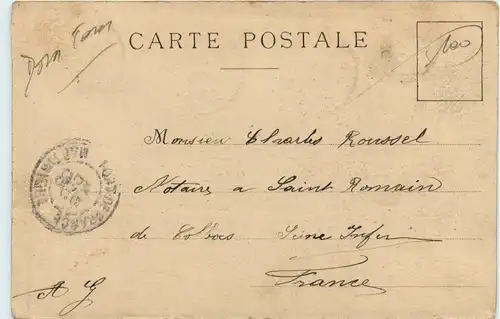 CARTE POSTALE
Monsieur Charles Roussel
Notaire à Saint Romain
de Colbosc Seine Infre
France
A G